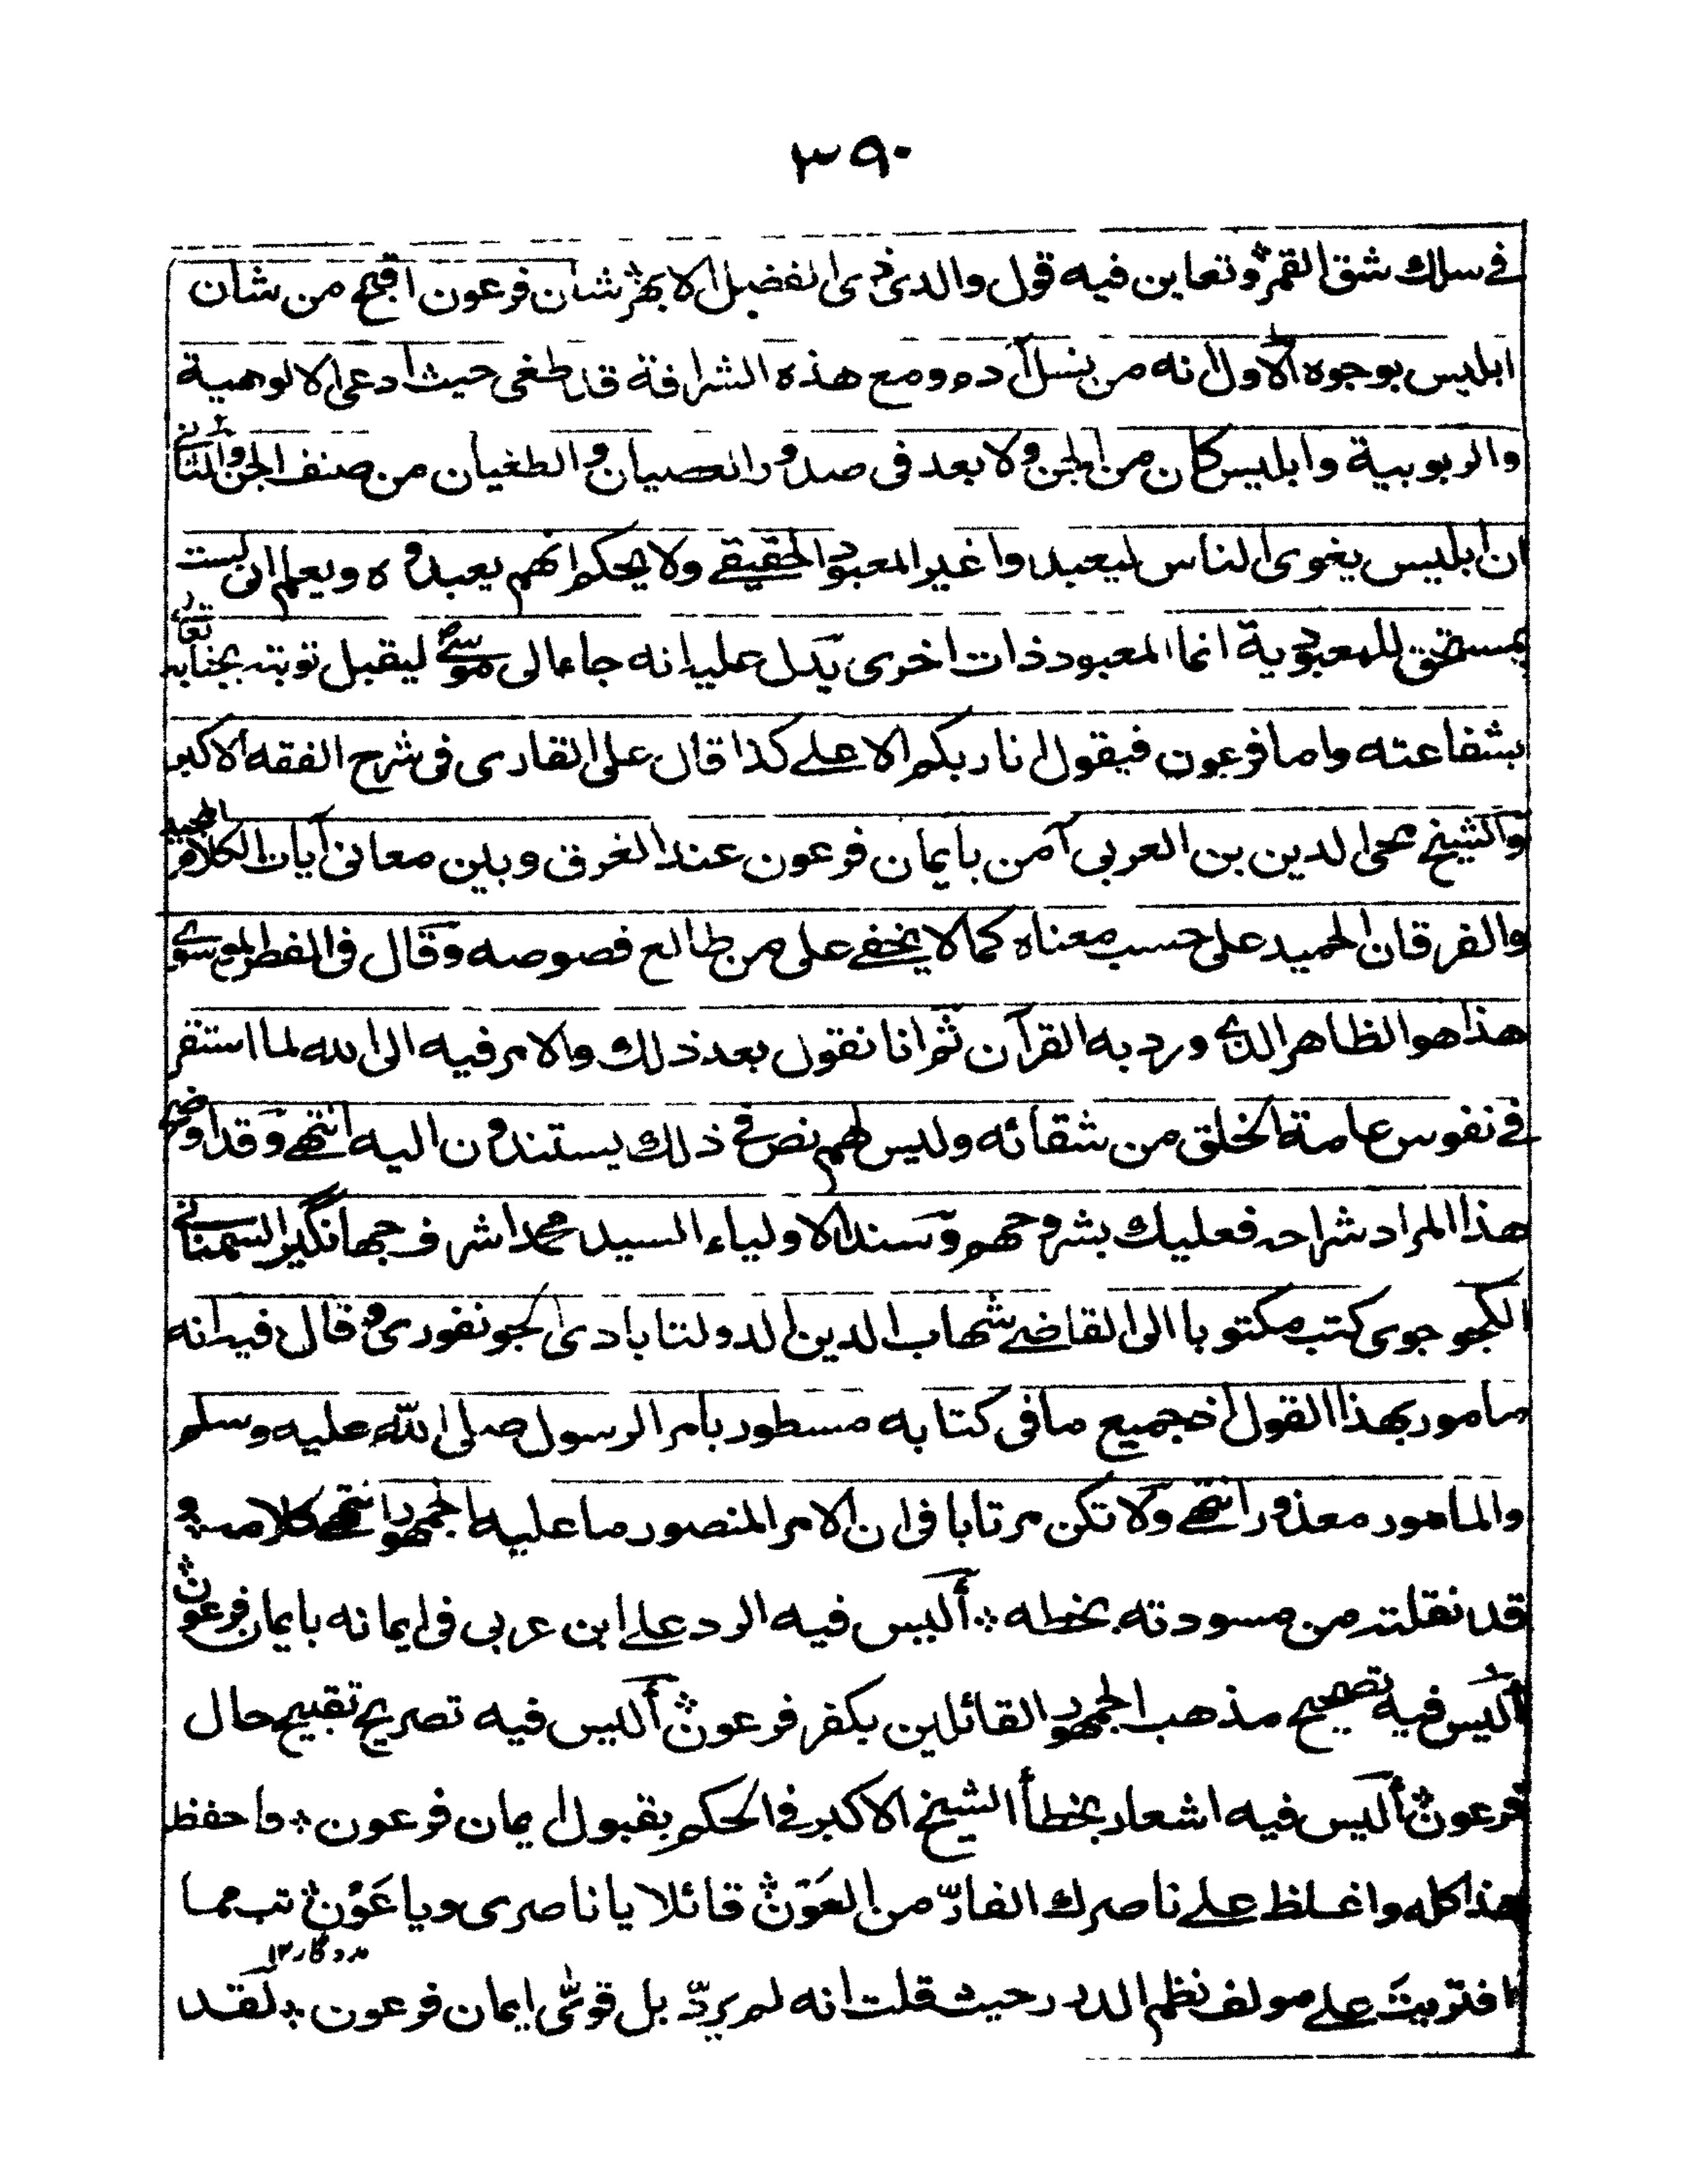 ٣٩٠
في سلك شق القمر وتعاين فيه قول والدي ذي الفضل الابهر شان فرعون اقبح من شان
ابليس بوجوه الاول انه من نسل آدم ومع هذه الشرافة قد طغى حيث ادعى الالوهية
والربوبية وابليس كان من الجن ولا بعد في صدور العصيان والطغيان من صنف الجن والثاني
ان ابليس يغوى الناس ليعبدوا غير المعبود الحقيقي ولا يحكم انهم يعبدوه ويعلم اني لست
بمستحق للمعبودية انما المعبود ذات اخرى يدل عليه انه جاء الى موسى ليقبل توبته بجنابه تعالى
بشفاعته واما فرعون فيقول انا ربكم الاعلى كذا قال على القارى في شرح الفقه الاكبر
والشيخ محى الدين بن العربي آمن بايمان فرعون عند الغرق وبين معاني آيات الكلام المجيد
والفرقان الحميد على حسب معناه كما لا يخفى على من طالع فصوصه وقال في الفص الموسوى
هذا هو الظاهر الذي ورد به القرآن ثم انا نقول بعد ذلك والامر فيه الى الله لما استقر
في نفوس عامة الخلق من شقائه وليس لهم نص في ذلك يستندون اليه انتهى وقد اوضح
هذا المراد شراحه فعليك بشروحهم وسند الاولياء السيد محمد اشرف جهانگير السمناني
الكجوجوى كتب مكتوبا الى القاضي شهاب الدين الدولتابادى الجونفورى وقال فيه انه
مامور بهذا القول اذ جميع ما في كتابه مسطور بامر الرسول صلى الله عليه وسلم
والمامور معذور انتهى ولا تكن مرتابا في ان الامر المنصور ما عليه الجمهور انتهى كلامه و
قد نقلته من مسودته بخطه ۞ أليس فيه الرد على ابن عربي في ايمانه بايمان فرعون
أليس فيه تصحيح مذهب الجمهور القائلين بكفر فرعون أليس فيه تصريح تقبيح حال
فرعون أليس فيه اشعار بخطأ الشيخ الاكبر في الحكم بقبول ايمان فرعون ۞ فاحفظ
هذا كله واغلظ على ناصرك الفارّ من العَوْن قائلا يا ناصرى ويا عَوْن تب مما
مددگار ١٢
افتريتَ على مولف نظم الدرر حيث قلت انه لم يردّ بل قوّى ايمان فرعون ۞ لقد